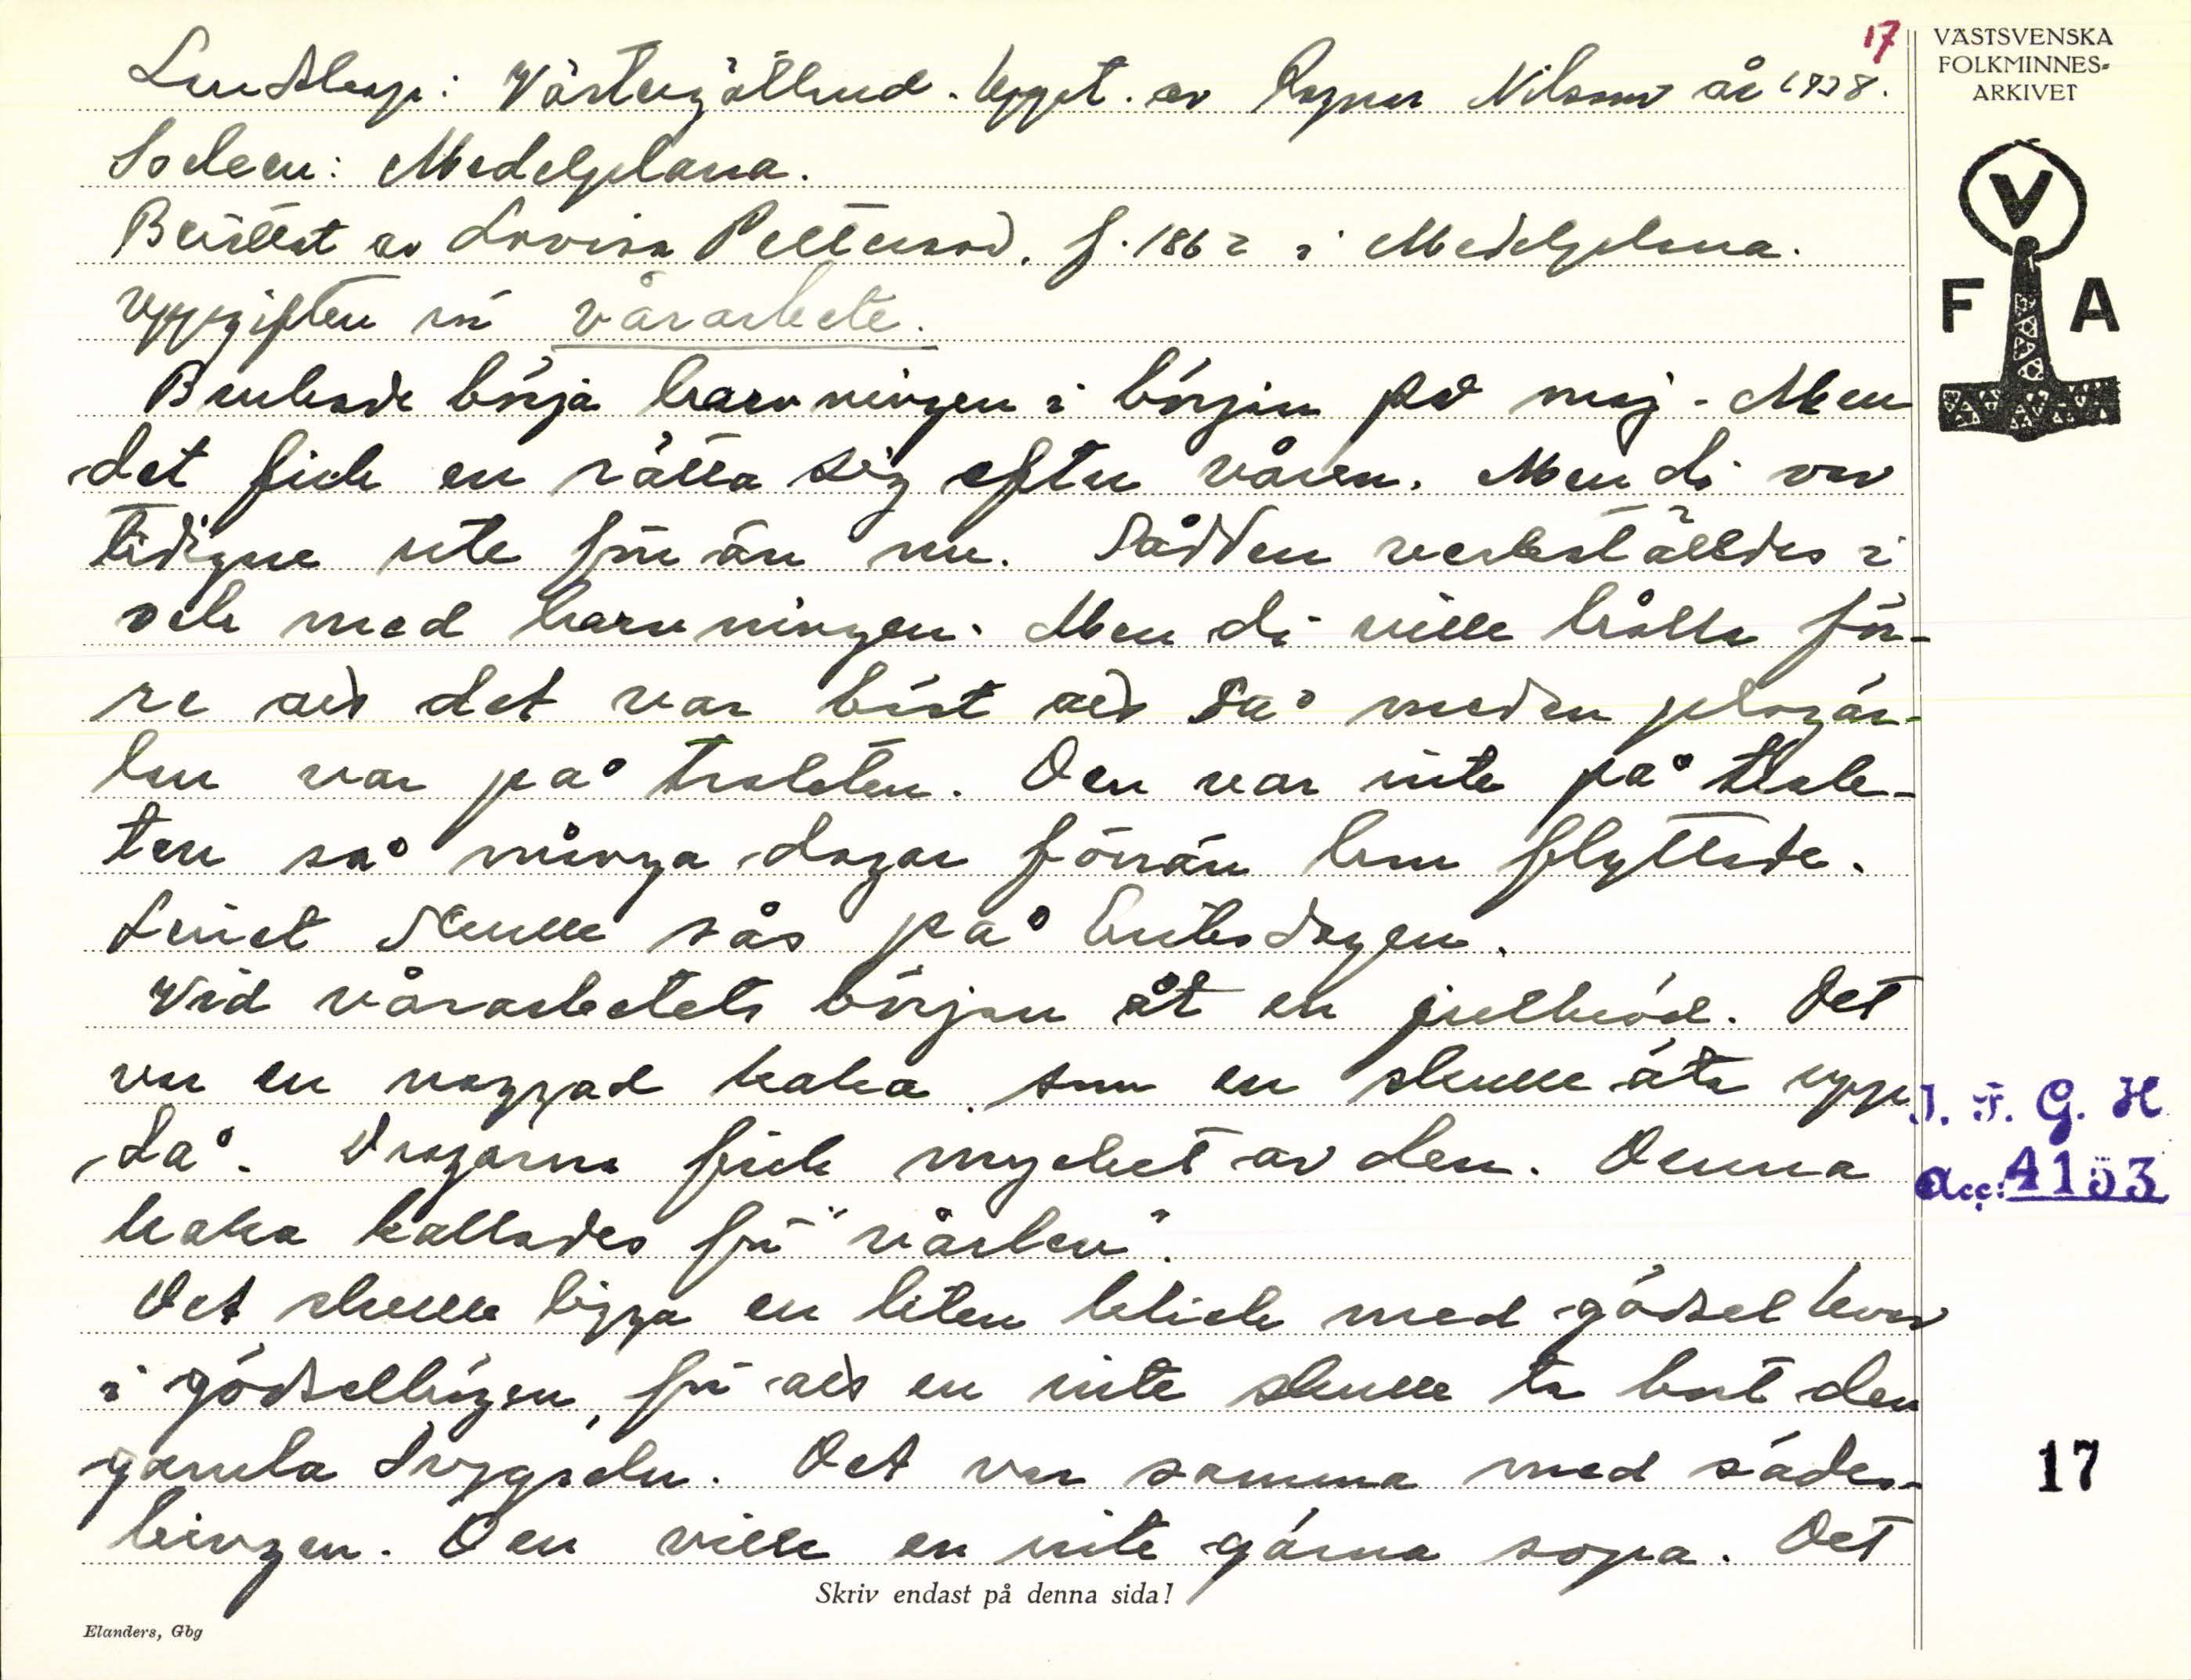 17
Landskap: Västergötland. Uppt. av Ragnar Nilsson år 1938.
Socken: Medelplana.
Berättat av Lovisa Pettersson, f. 1862 i Medelplana.
Uppgiften rör vårarbete.
Brukade börja harvningen i början på maj. Men
det fick en rätta sig efter våren. Men di var
tidigare ute förr än nu. Sådden verkställdes i
ock med harvningen. Men di ville hålla för-
re att det var bäst att så medan plogär-
lan var på trakten. Den var inte på trak-
ten så många dagar förrän han flyttade.
Linet skulle sås på Eriksdagen.
Vid vårarbetets början åt en julbröd. Det
var en naggad kaka som en skulle äta upp
då. Dragarna fick mycket av den. Denna
kaka kallades för "vårlen".
Det skulle ligga en liten klick med gödsel kvar
i gödselhögen, för att en inte skulle ta bort den
gamla dryg​seln. Det var samma med sädes-
bingen. Den ville en inte gärna sopa. Det
VÄSTSVENSKA
FOLKMINNES-
ARKIVET
V
F A
I. F. G. H.
Acc: 4153
17
Skriv endast på denna sida!
Elanders, Gbg